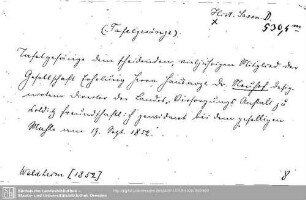 Hist. Saxon. D.
5395 m
(Tafelgesänge).
Tafelgesänge dem scheidenden, vieljährigen Mitglied der
Gesellschaft Erholung Herrn Hausarzt Dr. Neuhof desig-
nirtem Director der Landes-Versorgungs Anstalt zu
Colditz freundschaftlich gewidmet bei dem geselligen
Mahle am 19. Sept. 1852.
Waldheim [1852]
8
Sächsische Landesbibliothek -
Staats- und Universitätsbibliothek Dresden